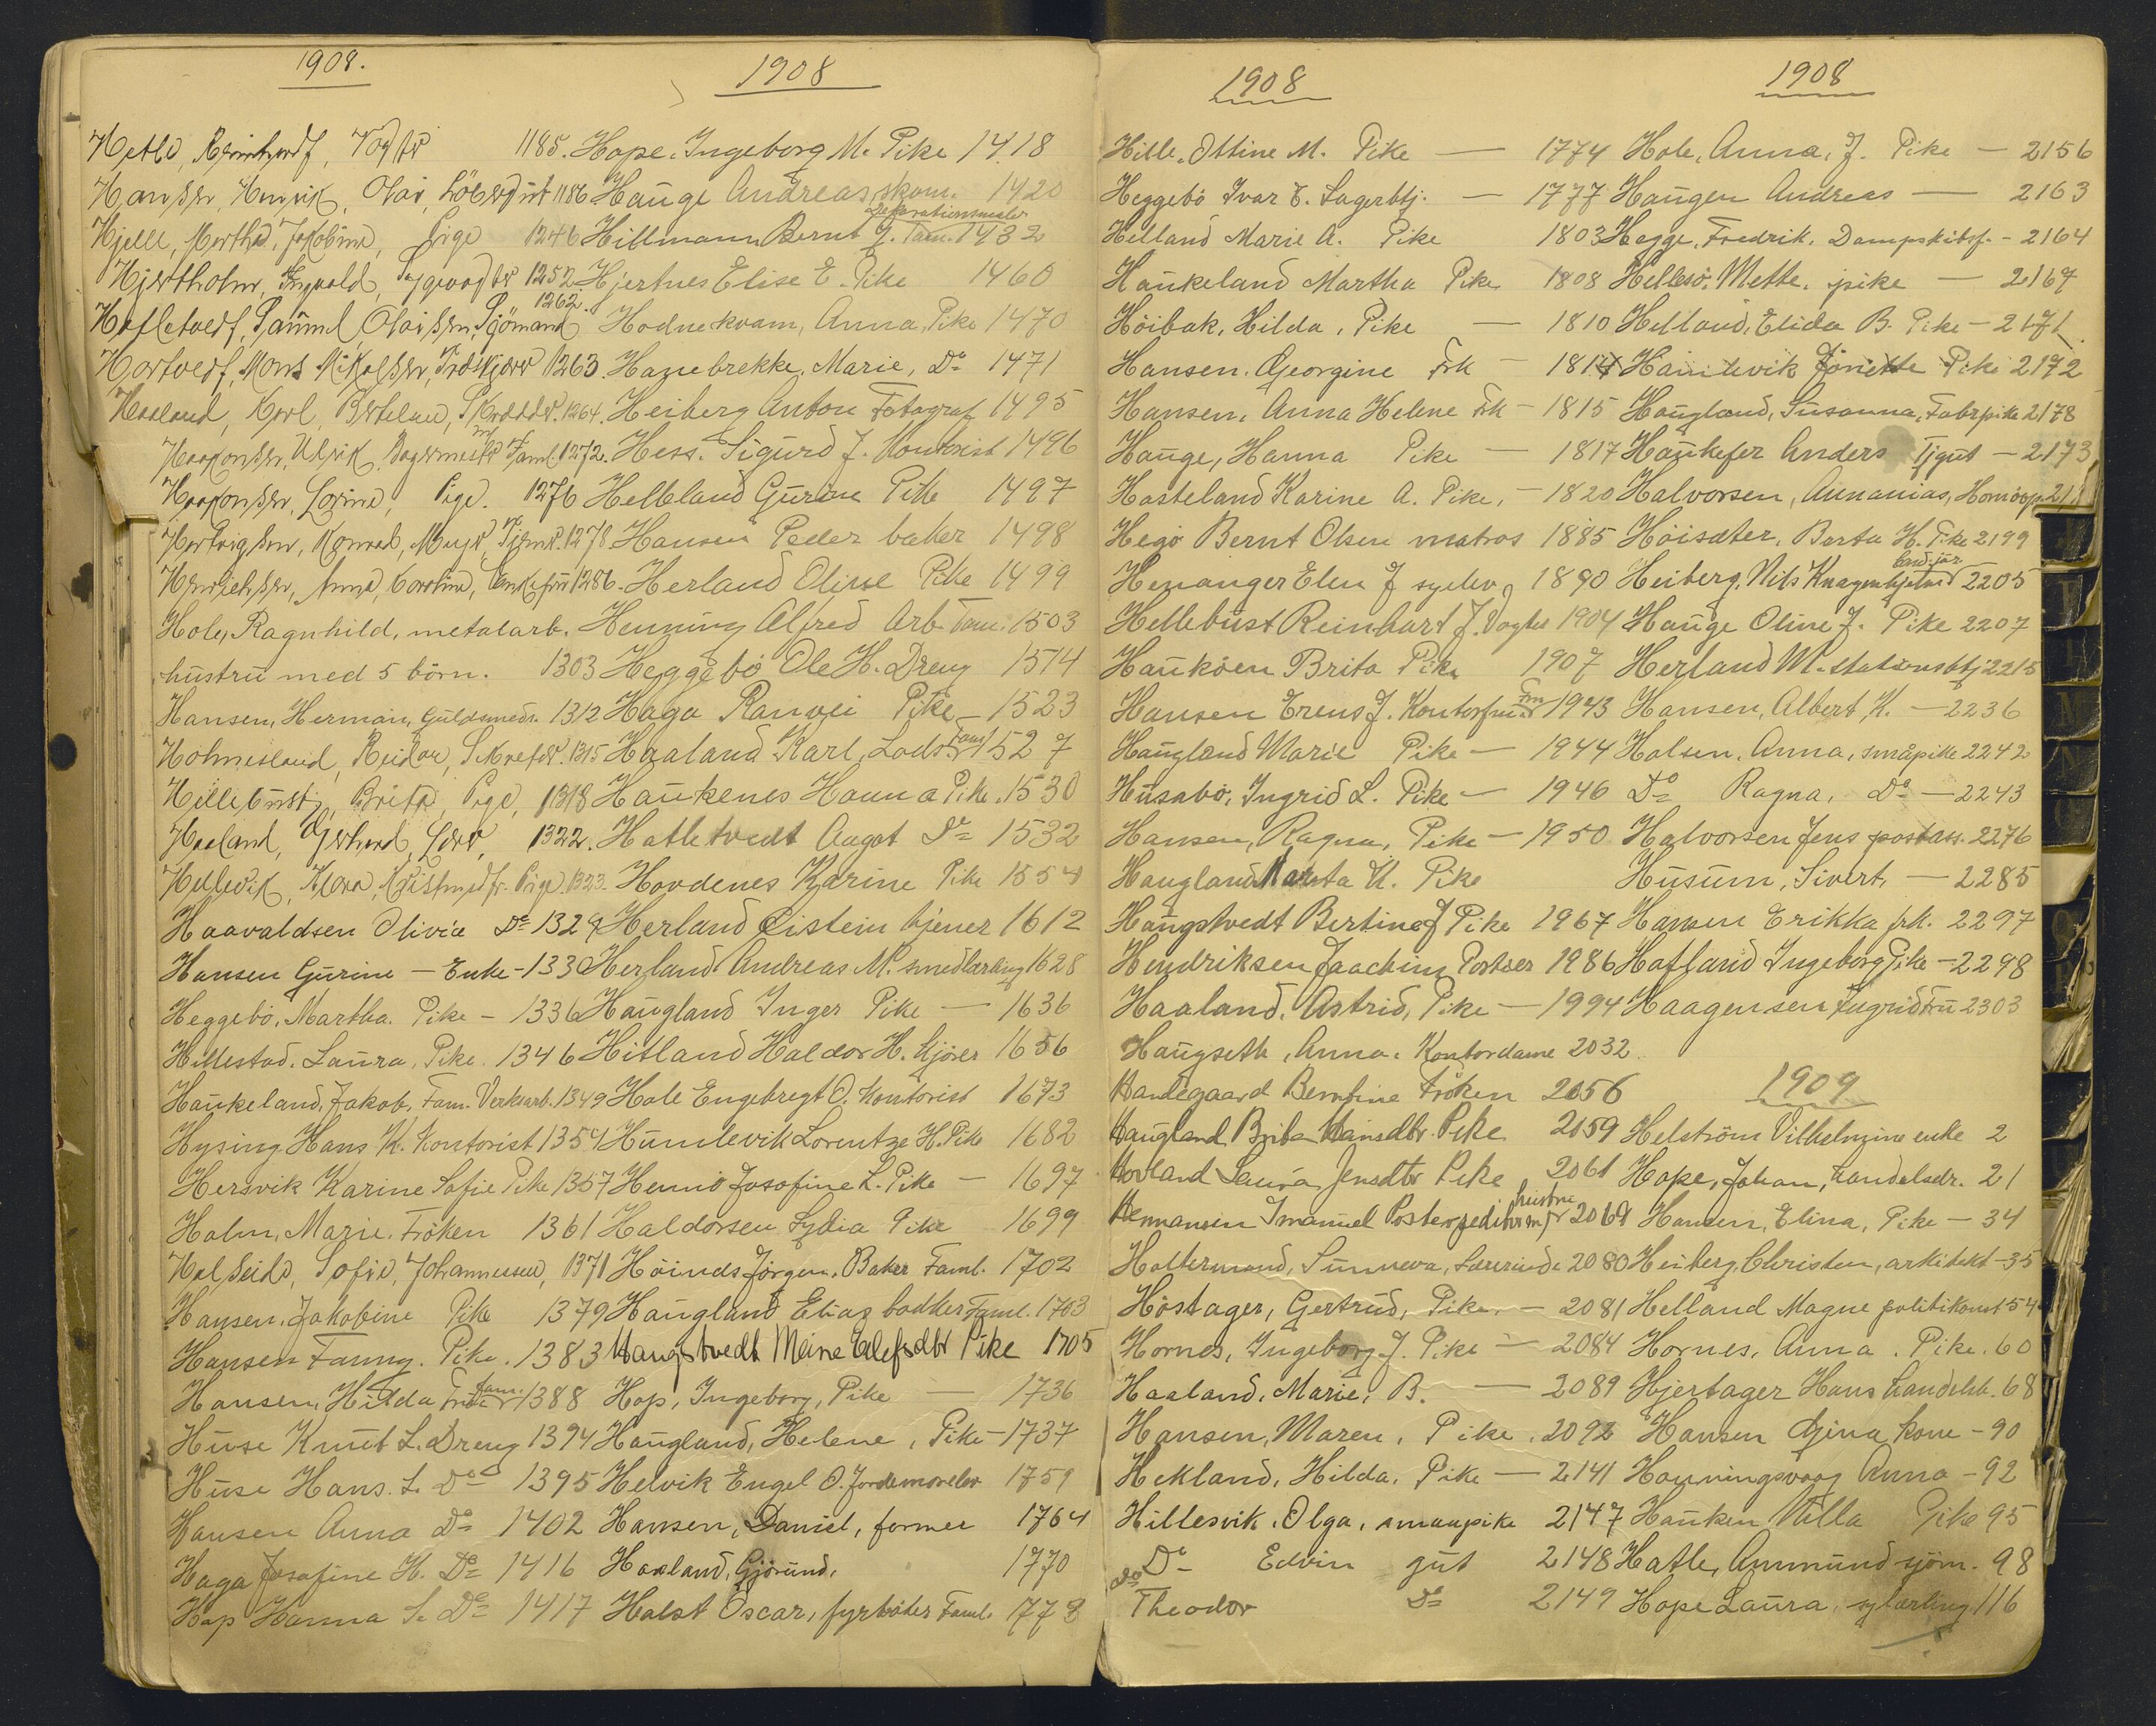 1908.
Hatle, Reinhardt, Vogter 1185.
Hansen, Henrik, Olai, Löbergut 1186
Hjelle, Martha, Jakobine, Pige 1246
Hjertholm, Ingvald, 1252
Hatletvedt, Samuel, Olai Sen, Sjömand 1262.
Hartvedt, Mons Mikalsen, 1263.
Haaland, Karl, Bertelau, 1264.
Haakonsen, Ulrik, Bagermester m/ Faml. 1272.
Haakonsen, Lovine, Pige. 1276
Hartvigsen, Konrad, 1278
Henrichsen, Anna, Caroline, Enkefru 1286.
Hole, Ragnhild, metalarb.
hustru med 5 börn. 1303
Hansen, Herman, Guldsmeds. 1312
Holmesland, Reidar, 1315
Hillebust, Brita, Pige, 1318
Haaland, Gerhard, 1322.
Hellevik, Klara, Pige. 1323.
Haavaldsen Olivia Do 1329
Hansen Gurine — Enke - 1330
Heggebö, Martha. Pike - 1336
Hillestad. Laura, Pike. 1346
Haukeland, Jakob, Fam. Verksarb. 1349
Hysing Hans K. Kontorist 1354
Hersvik Karine Sofie Pike 1357
Holm, Marie. Fröken 1361
Halseide, Sofie, Johannessen, 1371
Hansen, Jakobine Pike 1379
Hansen Fanny. Pike. 1383
Hansen, Hilda Frue fam. 1388
Huse Knut L. Dreng 1394
Huse Hans. L. Do 1395
Hansen Anna Do 1402
Haga Josafine H. Do 1416
Hop Hanna S. Do 1417
1908
Hope, Ingeborg M. Pike 1418
Hauge Andreas, skom. 1420
Hillmann Bernt G. Dekorationsmaler Fam. 1432
Hjertnes Elise E. Pike 1460
Hodnekvam, Anna, Pike 1470
Hanebrekke, Marie, Do 1471
Heiberg Anton Fotograf 1495
Hess. Sigurd J. Kontorist 1496
Helleland Gurine Pike 1497
Hansen Peder baker 1498
Herland Oline Pike 1499
Henning Alfred Arb. Fam. 1503
Heggebö Ole H. Dreng 1514
Haga Ranvei Pike - 1523
Haaland Karl, Lods. Fam. 1527
Haukenes Hanna Pike. 1530
Hatletvedt Aagot Do 1532
Hovdenes Karine Pike 1554
Herland Eistein tjener 1612
Herland Andreas M. smedlærling 1628
Haugland Inger Pike — 1636
Hitland Haldor H. Kjörer 1656
Hole Engebregt O. Kontorist 1673
Humlevik Lorentze H. Pike 1682
Hennö Josofine L. Pike — 1697
Haldorsen Lydia Pike 1699
Höinds Jörgen. Baker Faml. 1702
Haugland Elias bödker Faml. 1703
Haugstvedt Meine Elefsdtr Pike 1705
Hop, Ingeborg, Pike — 1736
Haugland, Helene, Pike - 1737
Helvik Engel O. Jordemorelev 1759
Hansen, Daniel, former 1764
Haaland, Gjörund, 1770
Holst Oscar, fyrböter Faml. 1773
1908
Hille, Ottine M. Pike — 1774
Heggebö Ivar E. Lagerbtj. — 1777
Helland Marie A. Pike 1803
Haukeland Martha Pike 1808
Höibak, Hilda, Pike — 1810
Hansen. Georgine Frk — 1814
Hansen, Anna Helene Frk - 1815
Hauge, Hanna Pike — 1817
Hasteland Karine A. Pike, - 1820
Hegö Bernt Olsen matros 1885
Henanger Elen J syelev 1890
Hellebust Reinhart J. Vogter 1904
Hauköen Brita Pike 1907
Hansen Ereus J. Kontorfm Fm 1943
Haugland Marie Pike — 1944
Husabö, Ingrid L. Pike — 1946
Hansen, Ragna, Pike — 1950
Haugland Marta K. Pike
Haugstvedt Bertine J Pike 1967
Hendriksen Joachim Portöer 1986
Haaland, Astrid, Pike — 1994
Haugseth, Anna, Kontordame 2032
Handegaard Berntine Fröken 2056
Haugland Brita Hansdtr. Pike 2059
Hovland Laura Jensdtr Pike 2061
Hermansen Imanuel Postexpeditör m/ hustru 2069
Haltermand, Sunneva, Lærerinde 2080
Höstager, Gertrud, Pike. — 2081
Hornes, Ingeborg J. Pike — 2084
Haaland, Marie, B. — 2089
Hansen, Maren, Pike. 2092
Hekland, Hilda, Pike — 2141
Hillesvik, Olga, smaapike 2147
Do Edvin gut 2148
do Theodor Do 2149
1908
Hole, Anna, J. Pike — 2156
Haugen Andreas — 2163
Hegge, Fredrik, Dampskibsf. - 2164
Hellesö, Mette, pike — 2167
Helland, Elida B. Pike - 2171
Haukevik Jörierte Pike 2172
Haugland, Susanna, Fabrpike 2178
Haukefer Anders Tjgut - 2173
Halvorsen, Annanias,
Höisæter, Berta H. Pike 2199
Heiberg, Nils Knagenhjelm landsjær 2205
Hauge Oline J. Pike 2207
Herland M. stationsbtj 2215
Hansen, Albert K. — 2236
Halsen, Anna, småpike 2242
Do Ragna, Do — 2243
Halvorsen Jens postass. 2276
Husum, Sivert, — 2285
Hansen Erikka frk. 2297
Hafland Ingeborg Pike - 2298
Haagensen Ingrid Fru 2303
1909
Helström Vilhelmine enke 2
Hope, Johan, handelsdr. 21
Hansen, Elina, Pike — 34
Heiberg, Christen, arkitekt - 35
Helland Magne politikonst 54
Hornes, Anna. Pike. 60
Hjertager Hans handelsb. 68
Hansen Gjina kone - 90
Honningsvaag Anna - 92
Hauken Villa Pike 95
Hatle, Ammund sjöm. 98
Hope Laura, sylærling 116